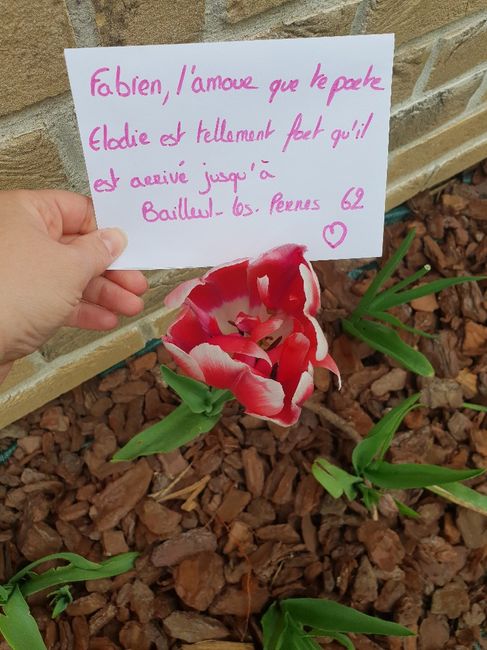 Fabien, l'amour que te porte
Elodie est tellement fort qu'il
est arrivé jusqu'à
Bailleul-les-Pernes 62